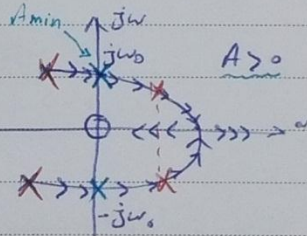 Amin
jω
jω₀
A > 0
σ
-jω₀